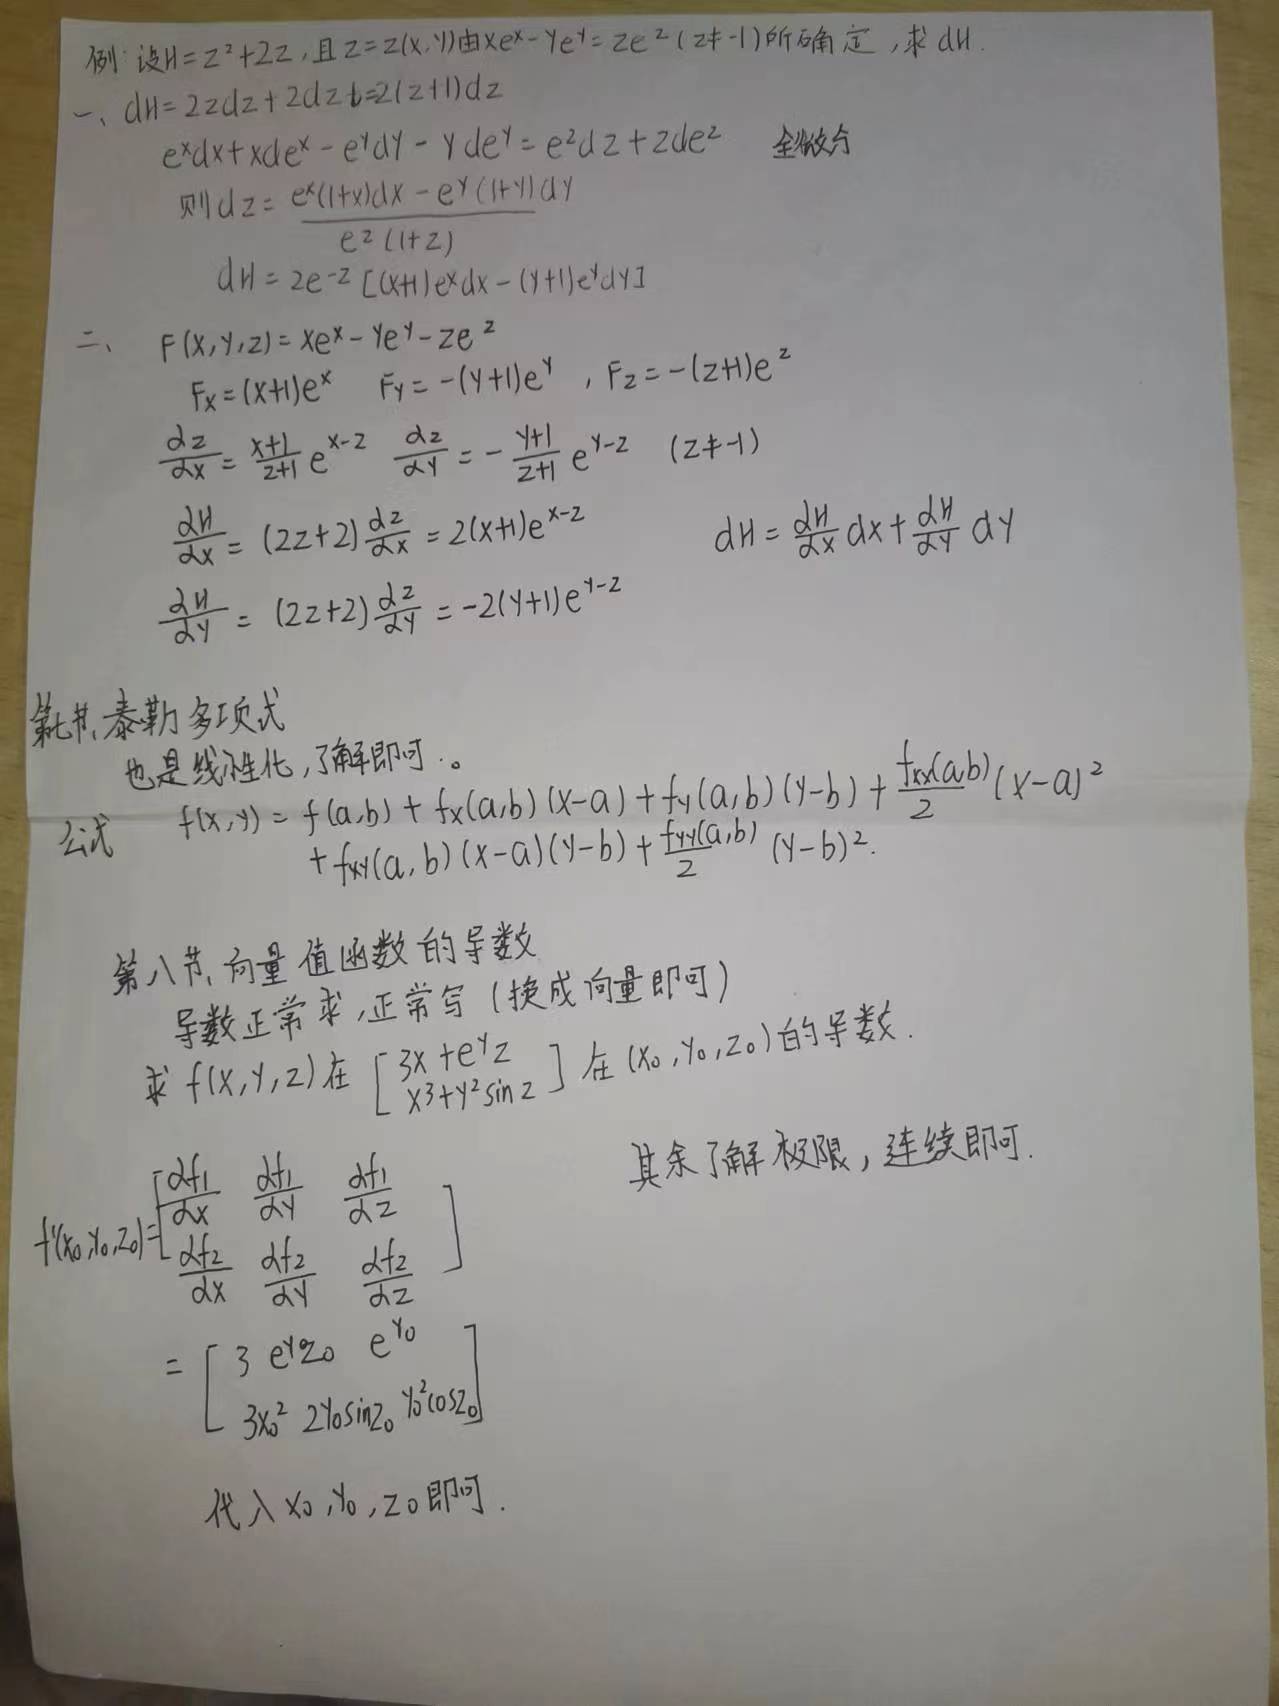 例: 设H=z²+2z,且z=z(x,y)由xeˣ-yeʸ=zeᶻ(z≠-1)所确定,求dH.
一、dH=2zdz+2dz=2(z+1)dz
eˣdx+xdeˣ-eʸdy-ydeʸ=eᶻdz+zdeᶻ 全微分
则dz= eˣ(1+x)dx-eʸ(1+y)dy / eᶻ(1+z)
dH=2e⁻ᶻ[(x+1)eˣdx-(y+1)eʸdy]
二、F(x,y,z)=xeˣ-yeʸ-zeᶻ
Fx=(x+1)eˣ Fy=-(y+1)eʸ , Fz=-(z+1)eᶻ
∂z/∂x = x+1/z+1 e^(x-z) ∂z/∂y = - y+1/z+1 e^(y-z) (z≠-1)
∂H/∂x = (2z+2)∂z/∂x = 2(x+1)e^(x-z) dH= ∂H/∂x dx+ ∂H/∂y dy
∂H/∂y = (2z+2)∂z/∂y = -2(y+1)e^(y-z)
第七节、泰勒多项式
也是线性化,了解即可.。
公式 f(x,y) = f(a,b) + fx(a,b)(x-a)+fy(a,b)(y-b)+ fxx(a,b)/2 (x-a)²
+fxy(a,b)(x-a)(y-b)+ fyy(a,b)/2 (y-b)².
第八节、向量值函数的导数
导数正常求,正常写(换成向量即可)
求f(x,y,z)在 [3x+eʸz
x³+y²sinz] 在(x₀,y₀,z₀)的导数.
其余了解极限,连续即可.
f'(x₀,y₀,z₀)=[∂f₁/∂x ∂f₁/∂y ∂f₁/∂z
∂f₂/∂x ∂f₂/∂y ∂f₂/∂z]
= [3 eʸz₀ e^y₀
3x₀² 2y₀sinz₀ y₀²cosz₀]
代入x₀,y₀,z₀即可.